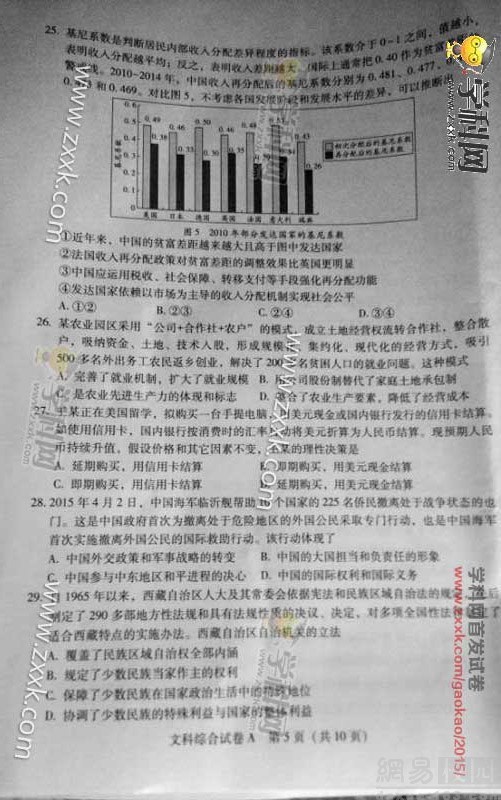 25. 基尼系数是判断居民内部收入分配差异程度的指标。该系数介于0-1之间，值越小，
表明收入分配越平均；反之，表明收入差距越大。国际上通常把0.40作为贫富
警 线。2010-2014年，中国收入再分配后的基尼系数分别为0.481、0.477、
和0.469。对比图5，不考虑各国发展阶段和发展水平的差异，可以推断出
0.6
0.5
0.4
0.3
0.2
0.1
0
基尼系数
0.49 0.38 0.46 0.33 0.50 0.30 0.46 0.35 0.48 0.29 0.51 0.43 0.26
初次分配后的基尼系数
再分配后的基尼系数
美国 日本 德国 英国 法国 意大利 瑞典
图5 2010年部分发达国家的基尼系数
①近年来，中国的贫富差距越来越大且高于图中发达国家
②法国收入再分配政策对贫富差距的调整效果比英国更明显
③中国应运用税收、社会保障、转移支付等手段强化再分配功能
④发达国家依赖以市场为主导的收入分配机制实现社会公平
A. ①② B. ②③ C. ②④ D. ③④
26. 某农业园区采用“公司+合作社+农户”的模式，成立土地经营权流转合作社，整合散
户，吸纳资金、土地、技术入股，形成规模化、集约化、现代化的经营方式，吸引
500多名外出务工农民返乡创业，解决了200多名贫困人口的就业问题。这种模式
A. 完善了就业机制，扩大了就业规模 B. 用公司股份制替代了家庭土地承包制
C. 是农业先进生产力的体现和标志 D. 整合了农业生产要素，降低了经营成本
27. 王某正在美国留学，拟购买一台手提电脑，用美元现金或国内银行发行的信用卡结算。
如使用信用卡，国内银行按消费时的汇率 将美元折算为人民币结算。现预期人民
币持续升值，假设价格和其它因素不变，王某的理性决策是
A. 延期购买，用信用卡结算 B. 即期购买，用美元现金结算
C. 即期购买，用信用卡结算 D. 延期购买，用美元现金结算
28. 2015年4月2日，中国海军临沂舰帮助 个国家的225名侨民撤离处于战争状态的也
门。这是中国政府首次为撤离处于危险地区的外国公民采取专门行动，也是中国海军
首次实施撤离外国公民的国际救助行动。该行动体现了
A. 中国外交政策和军事战略的转变 B. 中国的大国担当和负责任的形象
C. 中国参与中东地区和平进程的决心 D. 中国的国际权利和国际义务
29. 自1965年以来，西藏自治区人大及其常委会依据宪法和民族区域自治法的规 后
制定了290多部地方性法规和具有法规性质的决议、决定，对多项全国性法
适合西藏特点的实施办法。西藏自治区自治机关的立法
A. 覆盖了民族区域自治权全部内涵
B. 规定了少数民族当家作主的权利
C. 保障了少数民族在国家政治生活中的特殊地位
D. 协调了少数民族的特殊利益与国家的整体利益
文科综合试卷A 第5页（共10页）
学科网
www.zxxk.com
学科网首发试卷
www.zxxk.com/gaokao/2015/
網易